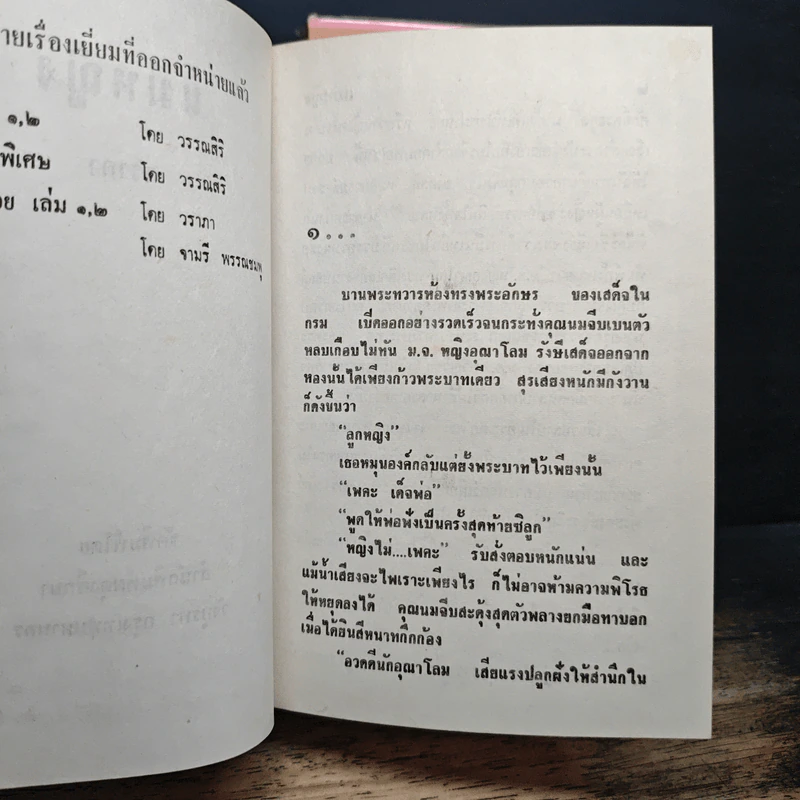 ายเรื่องเยี่ยมที่ออกจำหน่ายแล้ว
๑,๒ โดย วรรณสิริ
พิเศษ โดย วรรณสิริ
อย เล่ม ๑,๒ โดย วราภา
โดย จามรี พรรณชมพู
๑...
บานพระทวารห้องทรงพระอักษร ของเสด็จใน
กรม เปิดออกอย่างรวดเร็วจนกระทั่งคุณนมจีบเบนตัว
หลบเกือบไม่ทัน ม.จ. หญิงอุณาโลม รังษีเสด็จออกจาก
ห้องนั้นได้เพียงก้าวพระบาทเดียว สุรเสียงหนักมีกังวาน
ก็ดังขึ้นว่า
“ลูกหญิง”
เธอหมุนองค์กลับแต่ยั้งพระบาทไว้เพียงนั้น
“เพคะ เด็จพ่อ”
“พูดให้พ่อฟังเป็นครั้งสุดท้ายซิลูก”
“หญิงไม่....เพคะ” รับสั่งตอบหนักแน่น และ
แม้น้ำเสียงจะไพเราะเพียงไร ก็ไม่อาจห้ามความพิโรธ
ให้หยุดลงได้ คุณนมจีบสะดุ้งสุดตัวพลางยกมือทาบอก
เมื่อได้ยินสีหนาทกึกก้อง
“อวดดีนักอุณาโลม เสียแรงปลูกฝังให้สำนึกใน